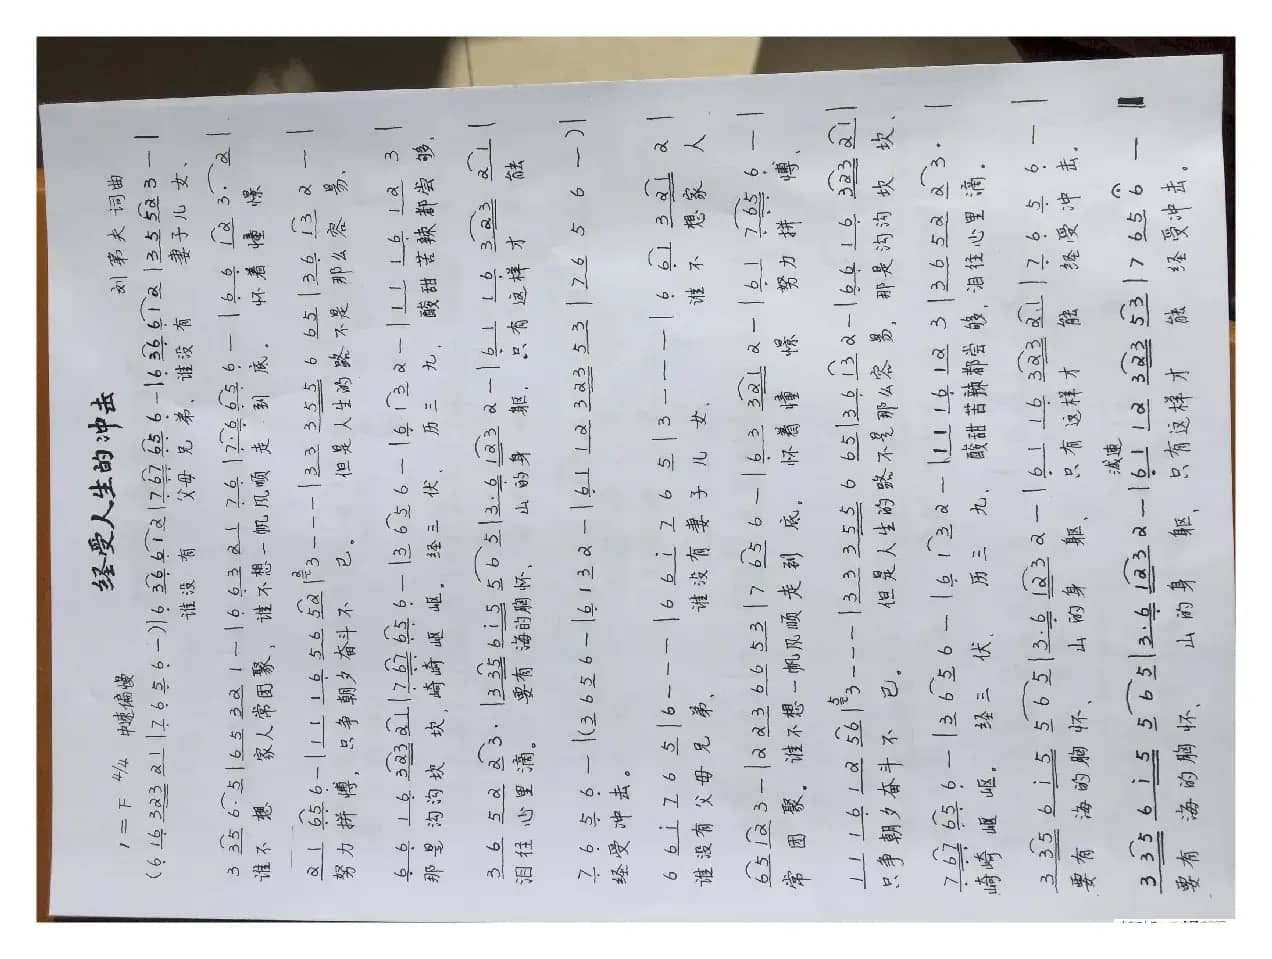 经受人生的冲击
1=F 4/4 中速偏慢 刘第夫词曲
(6 16 323 21 | 7 6 5 6 — ) | 6 36 61 2 | 767 656 — | 636 61 2 | 35 52 3 — |
谁没有 父母兄弟、谁没有 妻子儿女、
3 335 6·5 | 65 321 — | 66 321 76 | 7·6 65 6 — | 66 12 3·2 |
谁不想 家人常团聚,谁不想一帆风顺走到底。 怀着憧憬
21 656 — | 11 16 56 52 | 3 - - - | 33 355 6 65 | 36 13 2 — |
努力拼搏, 只争朝夕奋斗不已。 但是人生的路不是那么容易、
66 16 323 21 | 767 656 — | 3656 — | 6132 — | 11 16 12 3 |
那是沟沟坎坎,崎崎岖岖。经三伏、历三九、酸甜苦辣都尝够、
36 52 23· | 335 6i5 565 | 3·6 123 2 — | 61 16 323 21 |
泪往心里滴。 要有海的胸怀、山的身躯、只有这样才能
7 6 5 6 — | (3656 — | 6132 — | 61 12 323 53 | 76 5 6 — ) |
经受冲击。
6 6i 76 5 | 6 - - - | 6 6i 76 5 | 3 - - - | 6 61 321 2 |
谁没有父母兄弟、 谁没有妻子儿女、 谁不想家人
65 12 3 — | 22 36 66 53 | 7 65 6 — | 63 321 2 — | 61 765 6 — |
常团聚。谁不想一帆风顺走到底。怀着憧憬 努力拼搏、
11 16 12 56 | 3 - - - | 33 355 6 65 | 36 13 2 — | 66 16 323 21 |
只争朝夕奋斗不已。 但是人生的路不是那么容易, 那是沟沟坎坎、
767 656 — | 3656 — | 6132 — | 11 16 12 3 | 36 52 23· |
崎崎岖岖。 经三伏、历三九、酸甜苦辣都尝够,泪往心里滴。
3 335 6i5 565 | 3·6 123 2 — | 61 16 323 21 | 7 6 5 6 — |
要有海的胸怀、山的身躯、只有这样才能经受冲击。
减速
335 6i5 565 | 3·6 1232 — | 61 12 323 53 | 7 65 6 — ‖
要有海的胸怀、山的身躯、只有这样才能经受冲击。